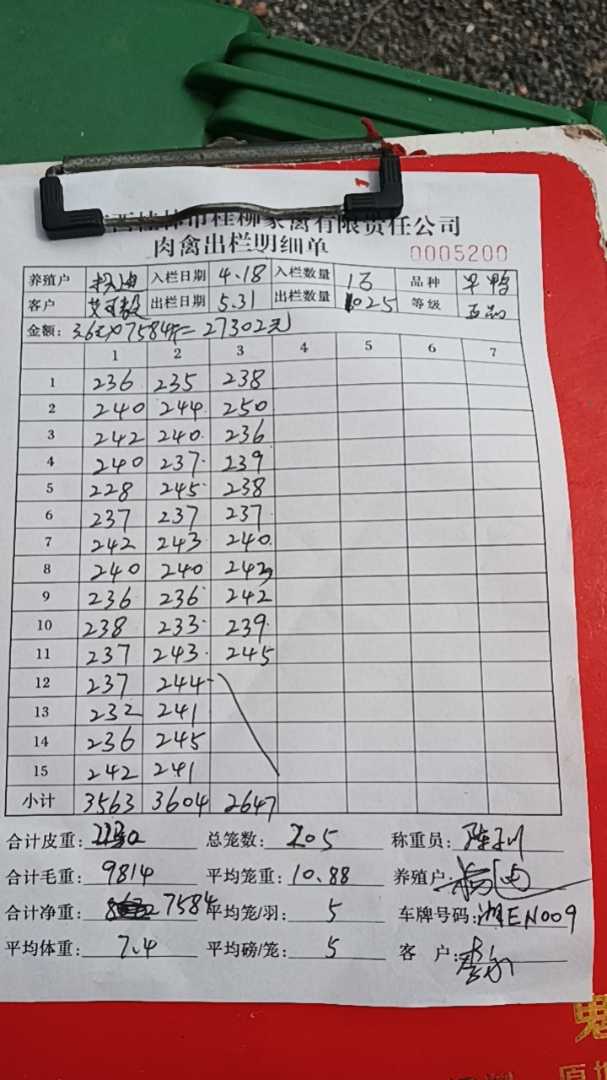 西桂林市桂柳家禽有限责任公司
肉禽出栏明细单 0005200
养殖户 入栏日期 4.18 入栏数量 1万 品种 旱鸭
客户 艾可毅 出栏日期 5.31 出栏数量 1025 等级
金额: 3.6元×7584斤=27302元
1 2 3 4 5 6 7
1 236 235 238
2 240 244 250
3 242 240 236
4 240 237 239
5 228 245 238
6 237 237 237
7 242 243 240
8 240 240 242
9 236 236 242
10 238 233 239
11 237 243 245
12 237 244
13 232 241
14 236 245
15 242 241
小计 3563 3604 2647
合计皮重: 总笼数: 205 称重员:
合计毛重: 9814 平均笼重: 10.88 养殖户:
合计净重: 7584 平均笼/羽: 5 车牌号码: 湘EN009
平均体重: 7.4 平均磅/笼: 5 客 户: